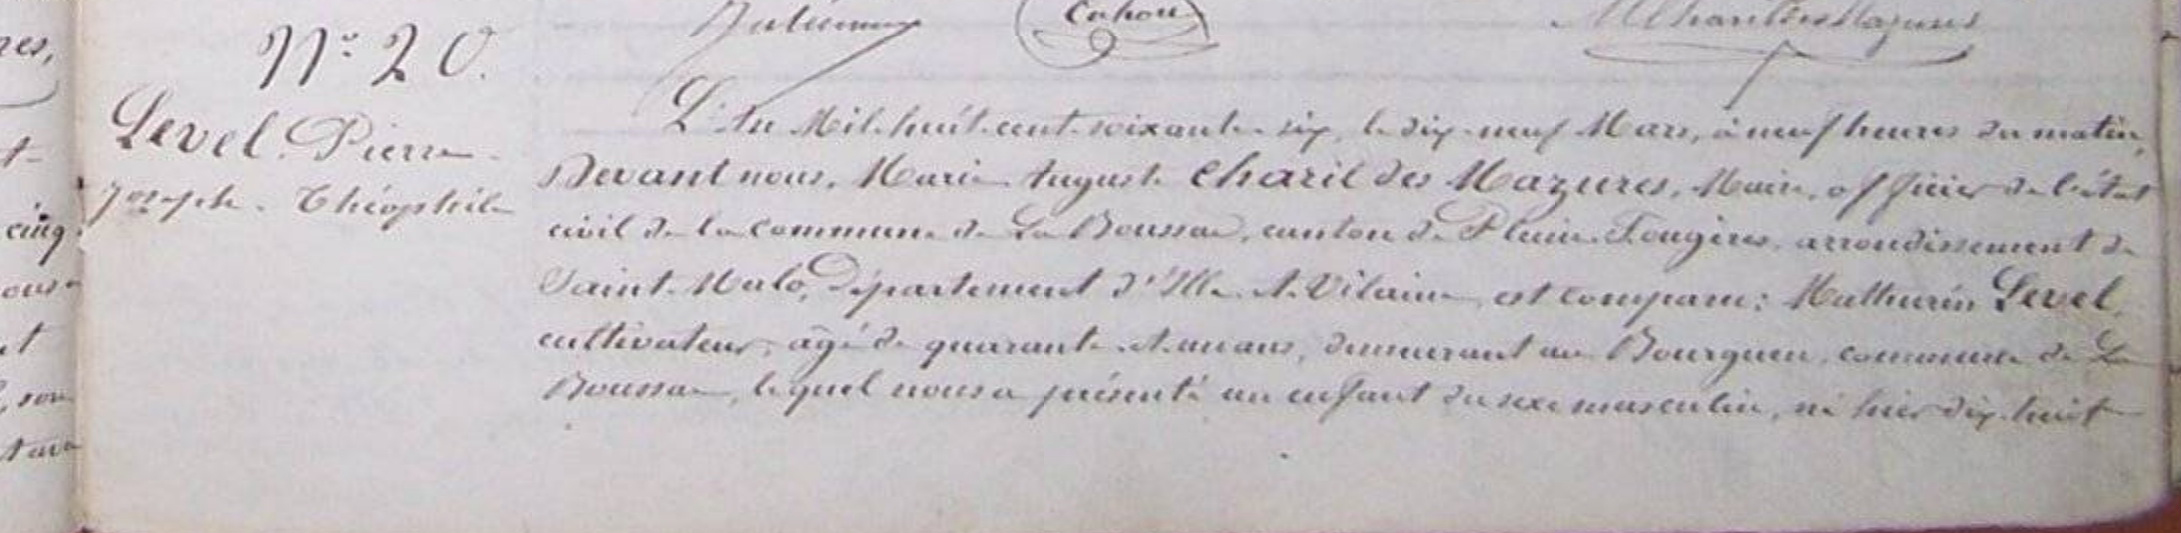 Cahou
N° 20.
Level. Pierre
Joseph. Théophile
L'An Mil-huit-cent-soixante-six, le dix-neuf Mars, à neuf heures du matin,
Devant nous, Marie Auguste Charil des Mazures, Maire, officier de l'état
civil de la commune de La Boussac, canton de Pleine-Fougères, arrondissement de
Saint-Malo, Département d'Ille-et-Vilaine, est comparu: Mathurin Level,
cultivateur, âgé de quarante-et-un ans, demeurant au Bourgueu, commune de La
Boussac, lequel nous a présenté un enfant du sexe masculin, né hier dix-huit
res,
cinq